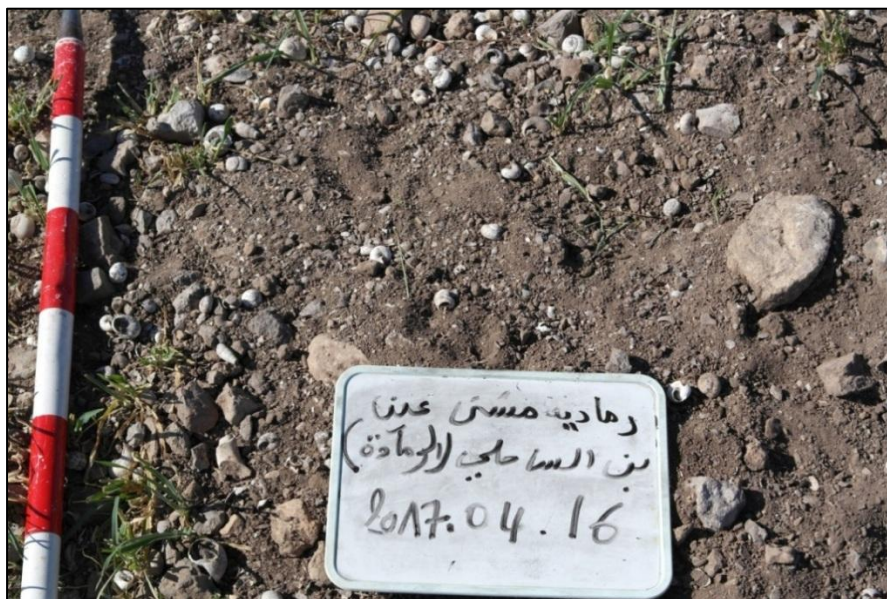 رمادية مشتى عدنا
بن الساحلي (الرمادة)
2017.04.16